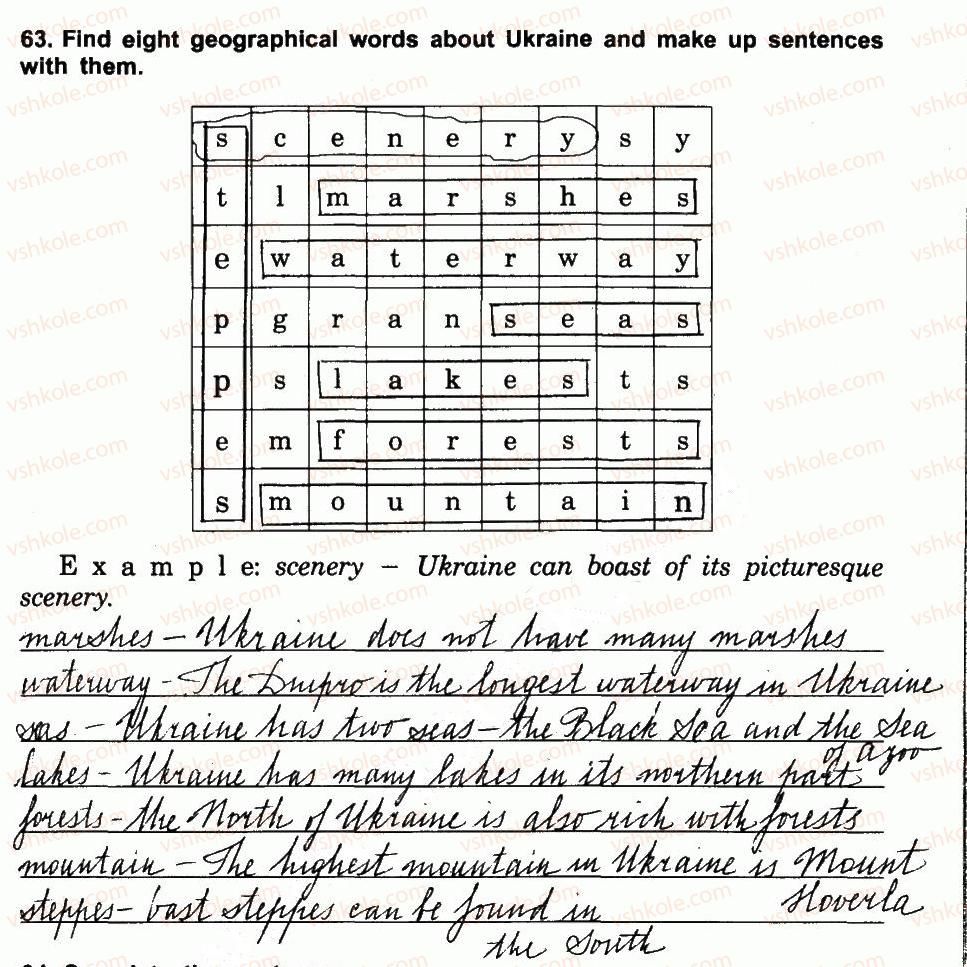 63. Find eight geographical words about Ukraine and make up sentences
with them.
s c e n e r y s y
t l m a r s h e s
e w a t e r w a y
p g r a n s e a s
p s l a k e s t s
e m f o r e s t s
s m o u n t a i n
E x a m p l e: scenery – Ukraine can boast of its picturesque
scenery.
marshes – Ukraine does not have many marshes
waterway - The Dnipro is the longest waterway in Ukraine
seas – Ukraine has two seas – the Black Sea and the Sea
of Azov
lakes - Ukraine has many lakes in its northern part
forests - the North of Ukraine is also rich with forests
mountain – The highest mountain in Ukraine is Mount
Hoverla
steppes – vast steppes can be found in
the South
vshkole.com